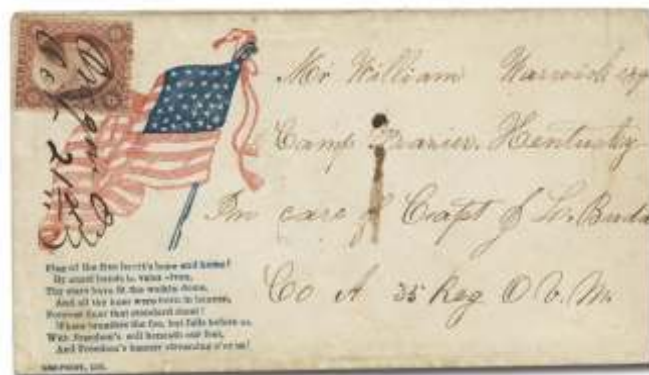 Mr William Warwick esq
Camp Frazier, Kentucky
In care of Capt J L. Budd
Co A 35 Reg O V. M.
Flag of the free heart's hope and home!
By angel hands to valor given,
Thy stars have lit the welkin dome,
And all thy hues were born in heaven,
Forever float that standard sheet!
Where breathes the foe, but falls before us,
With Freedom's soil beneath our feet,
And Freedom's banner streaming o'er us!